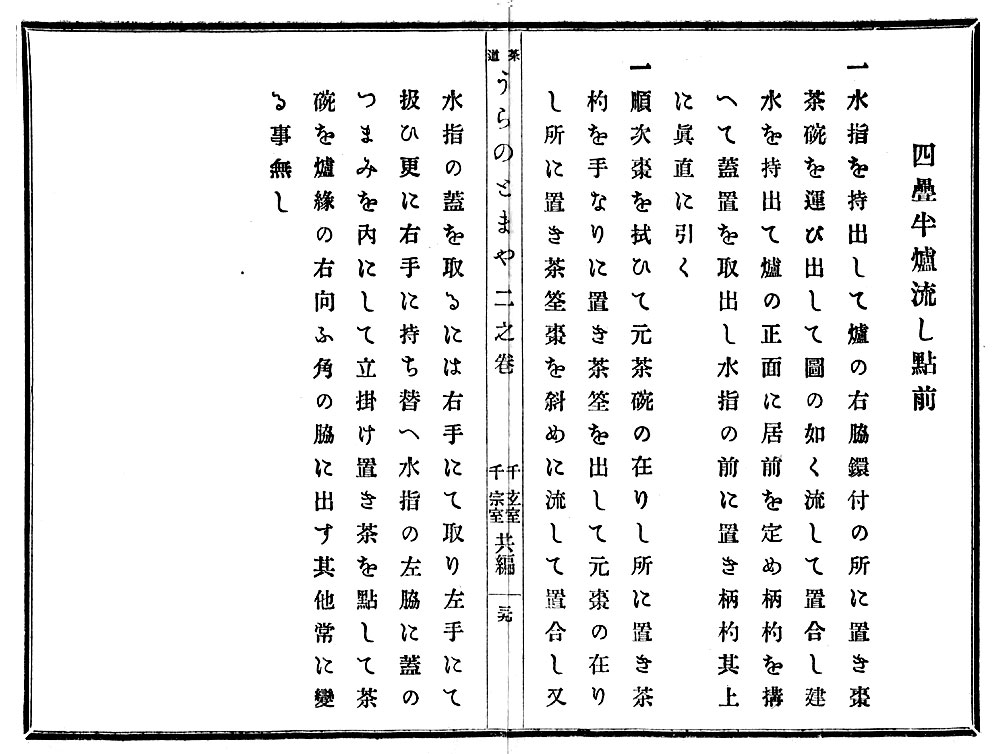 四疊半爐流し點前
一水指を持出して爐の右脇鐶付の所に置き棗
茶碗を運び出して圖の如く流して置合し建
水を持出て爐の正面に居前を定め柄杓を搆
へて蓋置を取出し水指の前に置き柄杓其上
に眞直に引く
一順次棗を拭ひて元茶碗の在りし所に置き茶
杓を手なりに置き茶筌を出して元棗の在り
し所に置き茶筌棗を斜めに流して置合し又
茶道
うらのとまや二之卷
千玄室
千宗室
共編
水指の蓋を取るには右手にて取り左手にて
扱ひ更に右手に持ち替へ水指の左脇に蓋の
つまみを內にして立掛け置き茶を點して茶
碗を爐緣の右向ふ角の脇に出す其他常に變
る事無し